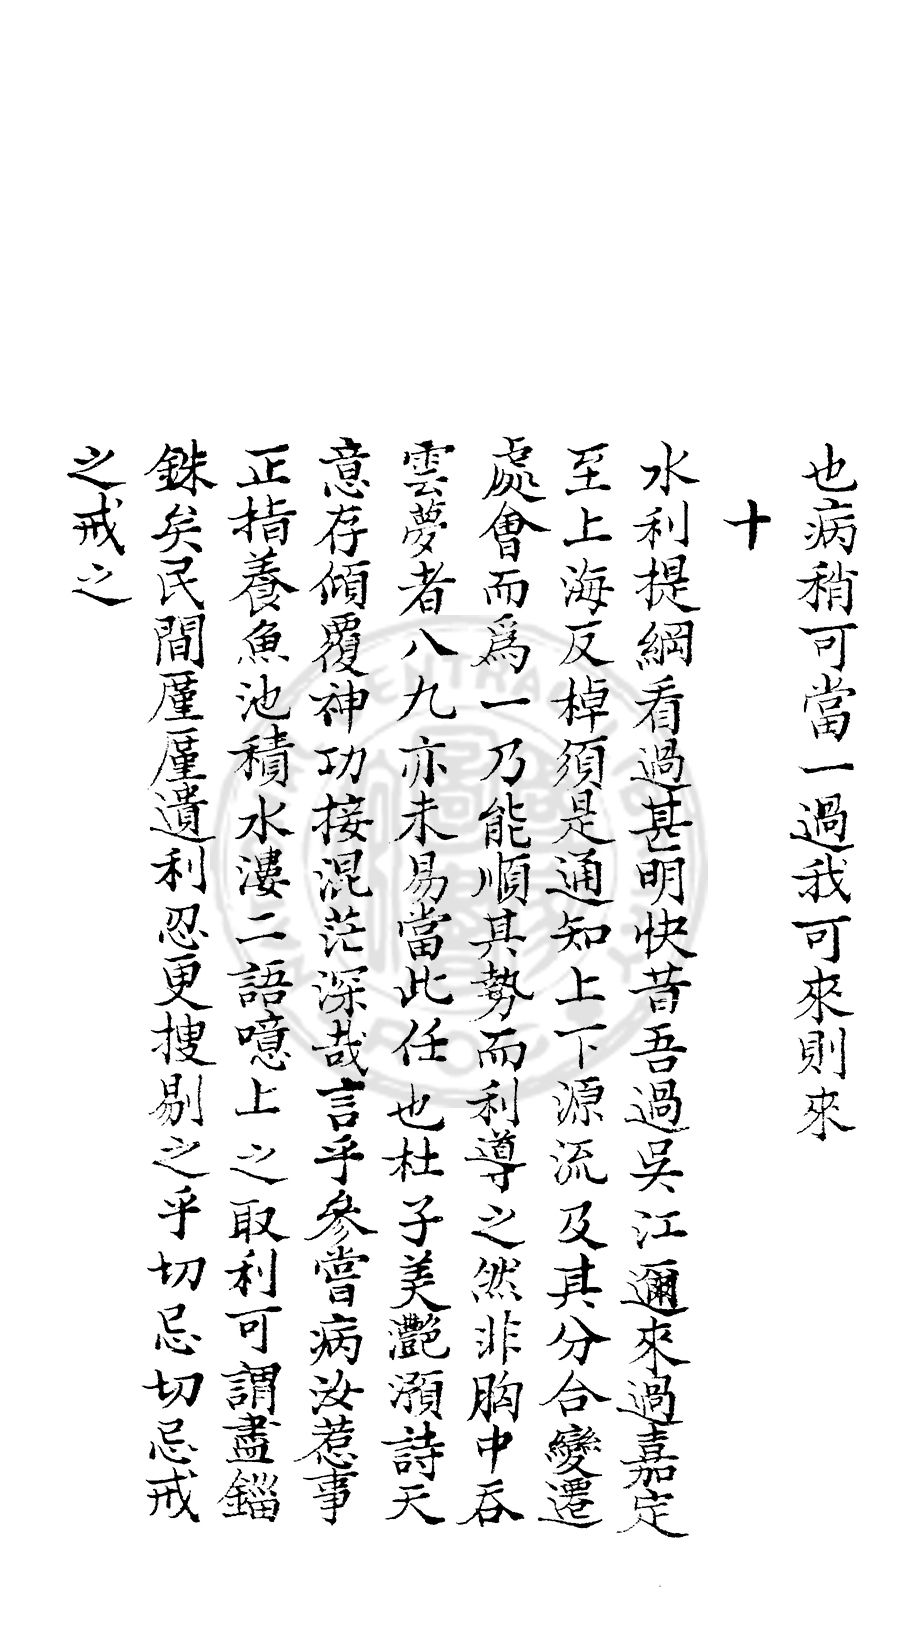 也病稍可當一過我可來則來
十
水利提綱看過甚明快昔吾過吳江邇來過嘉定
至上海反棹須是通知上下源流及其分合變遷
處會而爲一乃能順其勢而利導之然非胸中吞
雲夢者八九亦未易當此任也杜子美灩澦詩天
意存傾覆神功接混茫深哉言乎參嘗病汝惹事
正指養魚池積水漊二語噫上之取利可謂盡錙
銖矣民間厪厪遺利忍更搜剔之乎切忌切忌戒
之戒之